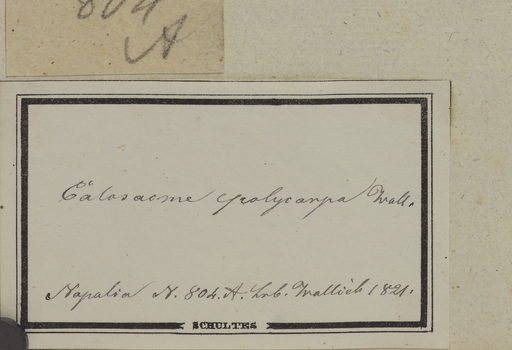 804
A
Calosacme polycarpa Wall.
Napalia N. 804. A. hrb. Wallich 1821.
SCHULTES